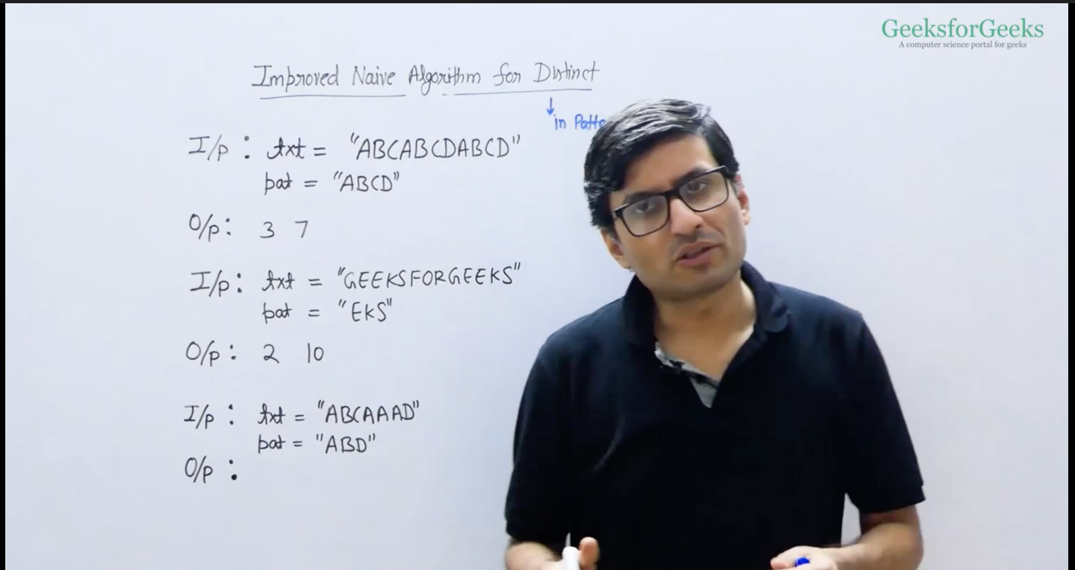 GeeksforGeeks
A computer science portal for geeks
Improved Naive Algorithm for Distinct
↓
in
I/p : txt = "ABCABCDABCD"
pat = "ABCD"
O/p : 3 7
I/p : txt = "GEEKSFORGEEKS"
pat = "EKS"
O/p : 2 10
I/p : txt = "ABCAAAD"
pat = "ABD"
O/p :